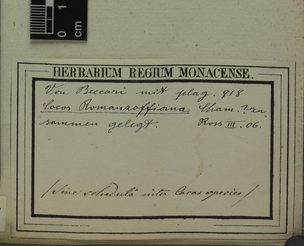 0 1
cm
HERBARIUM REGIUM MONACENSE.
Von Beccari mit plag. 918
Cocos Romanzoffiana, Cham. zu
sammen gelegt. Ross III. 06.
/Sine schedulâ inter Cocos species/